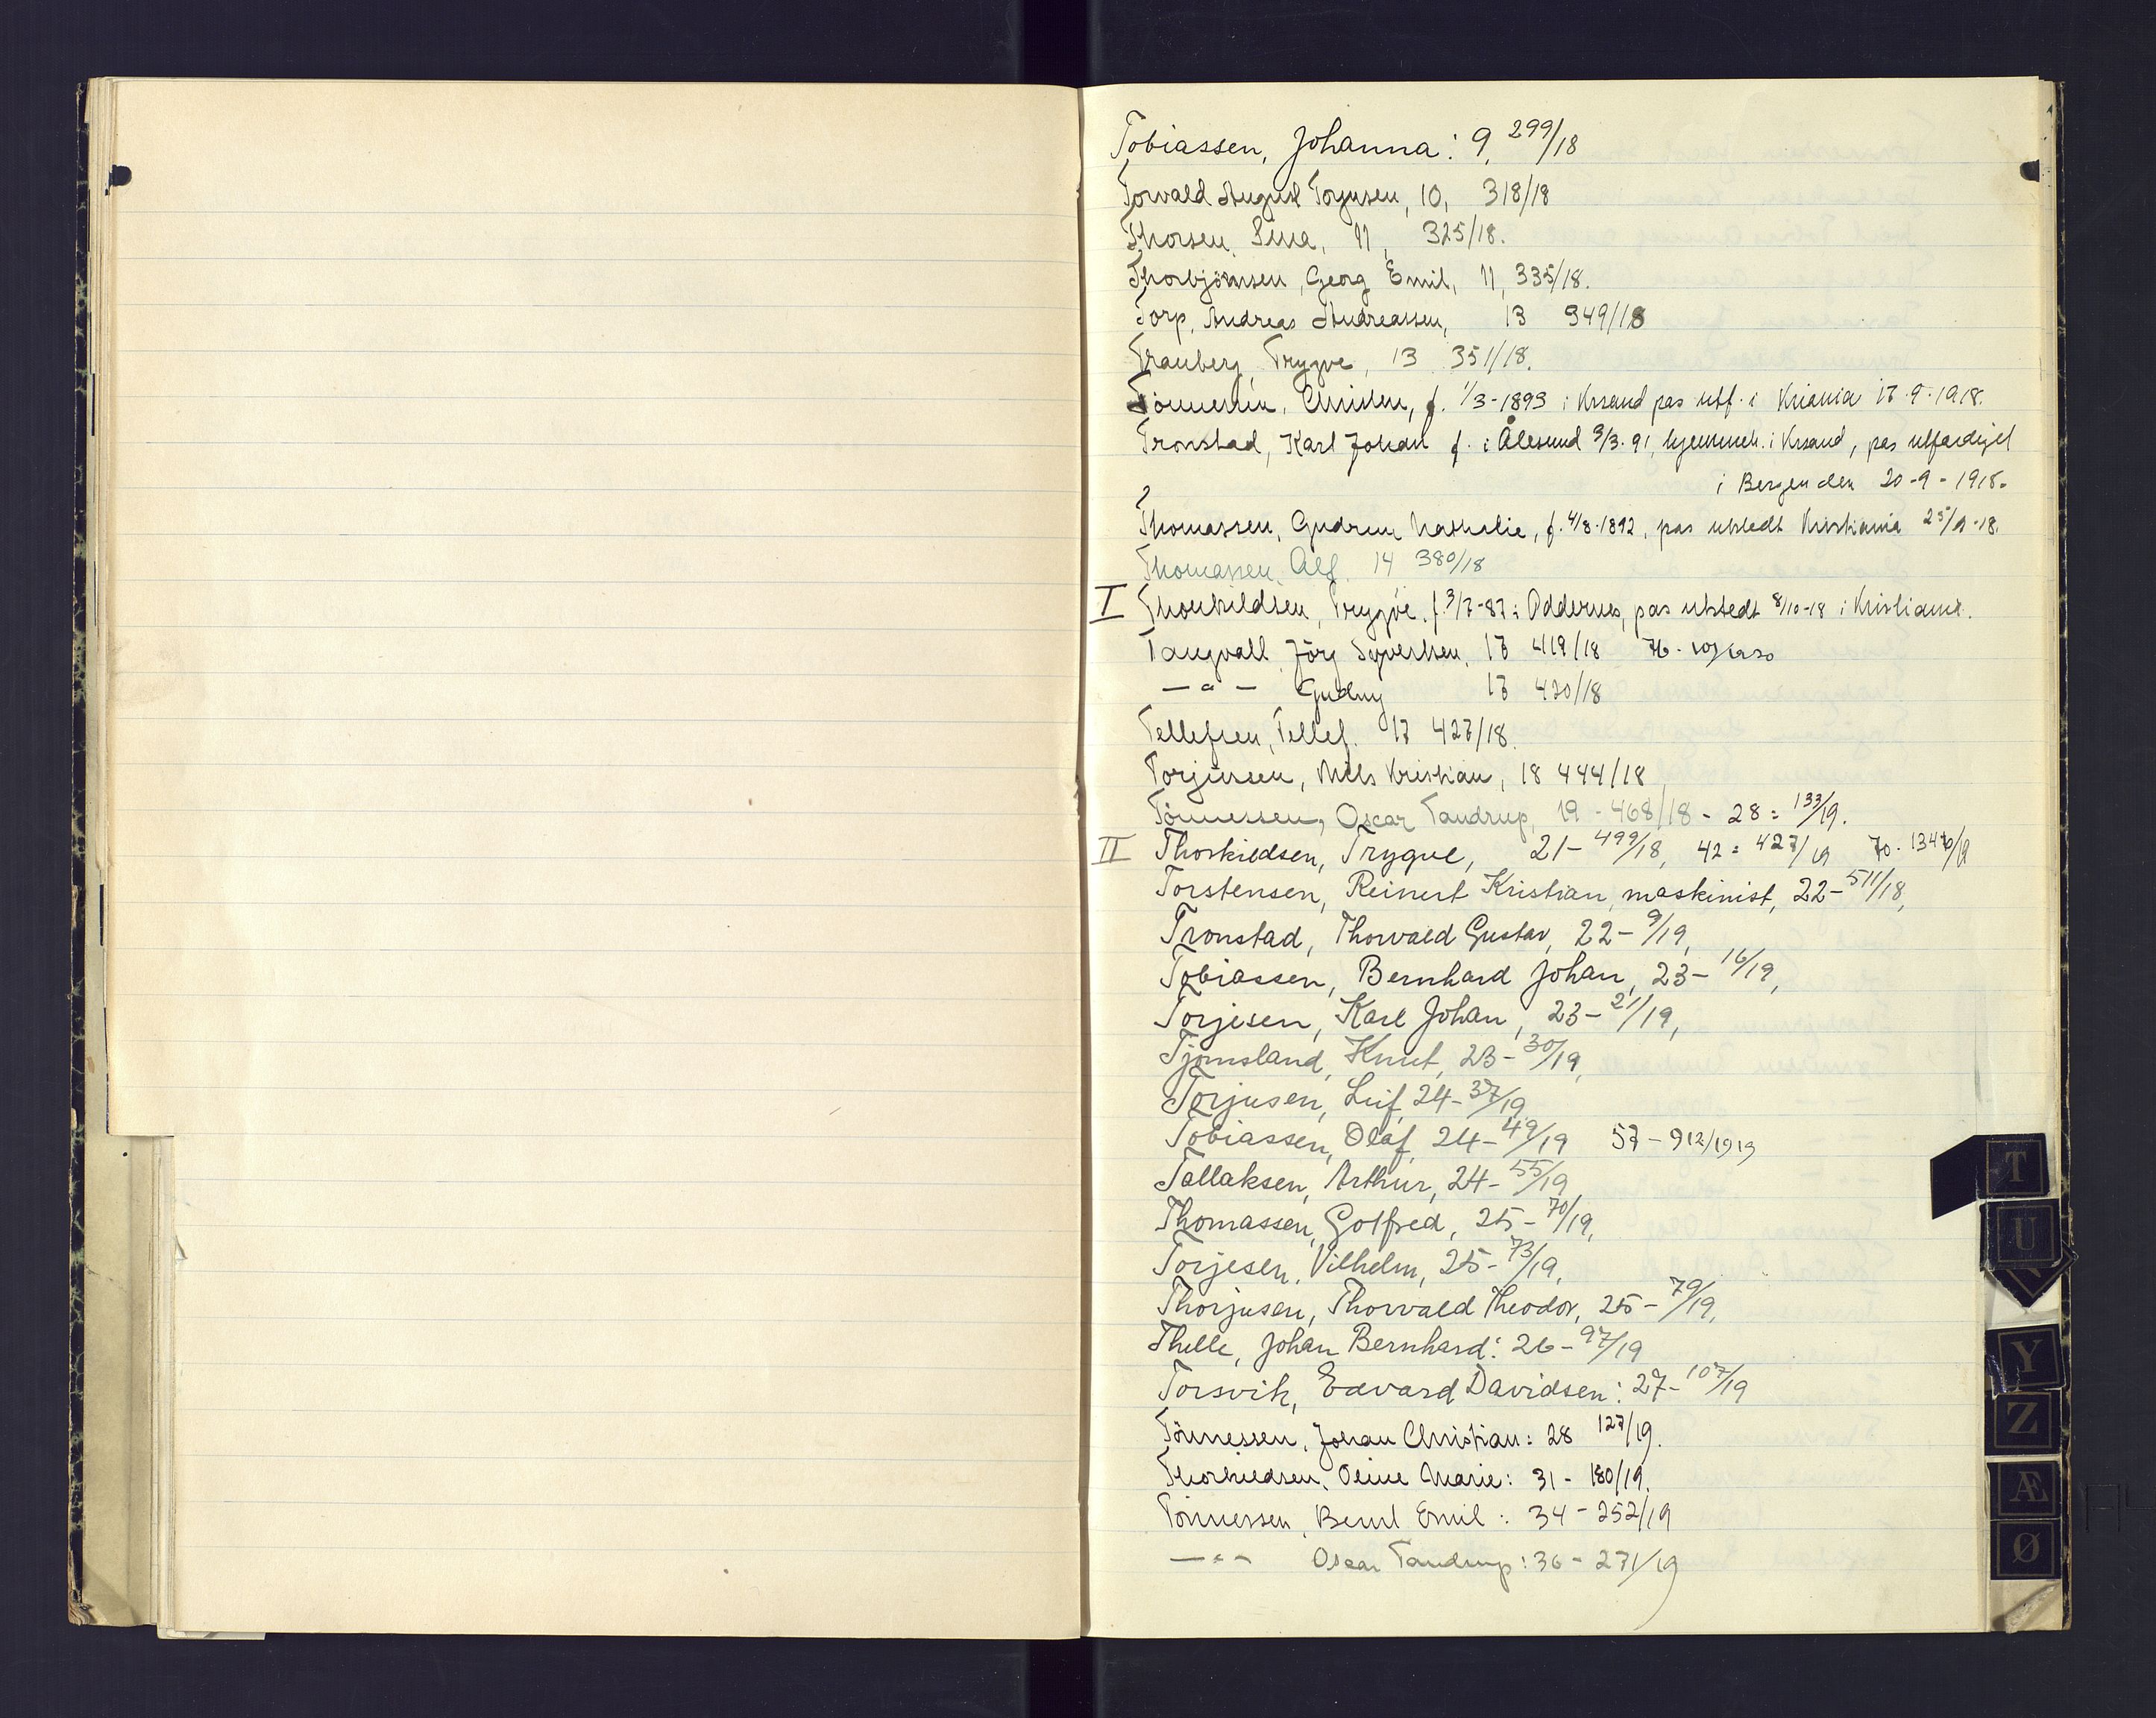 Tobiassen, Johanna: 9, 299/18
Torvald August Torjusen, 10, 318/18
Thorsen, Sina, 11, 325/18.
Thorbjörnsen, Georg Emil, 11, 335/18.
Torp, Andreas Andreassen, 13 349/18
Tranberg, Trygve, 13 351/18.
Tönnessen, Christen, f. 1/3-1893 i Krsand pas utf. i Kriania 17-9-1918.
Tronstad, Karl Johan f. i Ålesund 3/3-91, hjemmeh. i Krsand, pas utfærdiget
i Bergen den 20-9-1918.
?
Thomassen, Gudrun Nathalie, f. 4/8-1892, pas utstedt Kristiania 25/9-18.
Thomassen, Alf. 14 380/18
I Thorkildsen, Trygve, f. 3/7-87 i Oddernes, pas utstedt 8/10-18 i Kristiania.
Tangvall Jörg Syvertsen, 17 419/18 76-
— " — Gudny 17 420/18
Tellefsen, Tellef. 17 427/18.
Torjussen, Nils Kristian, 18 444/18
Tönnessen, Oscar Tandrup, 19-468/18 - 28 = 133/19.
II Thorkildsen, Trygve, 21-499/18, 42 = 427/19 70-1346/19
Torstensen, Reinert Kristian, maskinist, 22-511/18,
Tronstad, Thorvald Gustav, 22-9/19,
Tobiassen, Bernhard Johan, 23-16/19,
Torjesen, Karl Johan, 23-21/19,
Tjomsland, Knut, 23-30/19,
Torjusen, Leif, 24-37/19
Tobiassen, Olaf, 24-49/19 57-912/1919
Tallaksen, Arthur, 24-55/19
Thomassen, Gotfred, 25-70/19,
Torjesen, Vilhelm, 25-73/19,
Thorjusen, Thorvald Theodor, 25-79/19,
Thelle, Johan Bernhard: 26-97/19
Torsvik, Edvard Davidsen: 27-107/19
Tönnessen, Johan Christian: 28 127/19.
Thorkildsen, Oline Marie: 31-180/19.
Tönnessen, Bernt Emil: 34-252/19
— " — Oscar Tandrup: 36-271/19
T
U
Y
Z
Æ
Ø